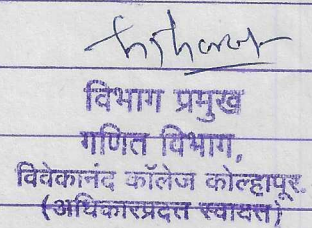 विभाग प्रमुख
गणित विभाग,
विवेकानंद कॉलेज कोल्हापूर.
(अधिकारप्रदत्त स्वायत्त)